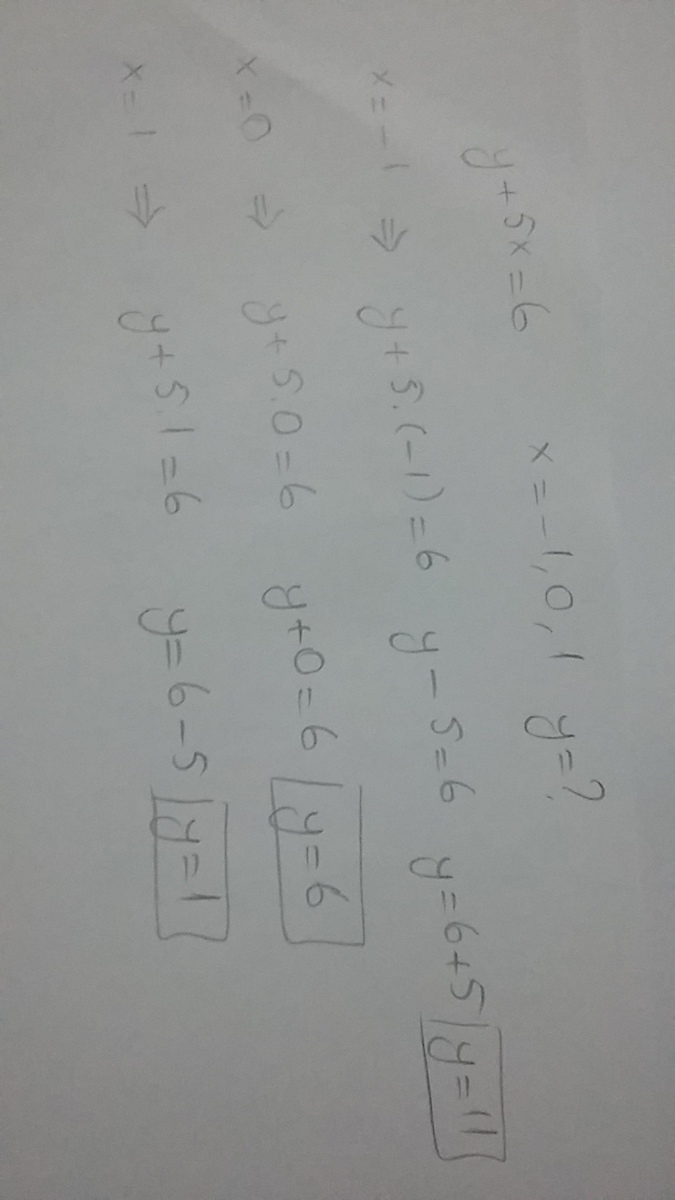 y + 5x = 6 x = -1, 0, 1 y = ?
x = -1 ⇒ y + 5.(-1) = 6 y - 5 = 6 y = 6 + 5 y = 11
x = 0 ⇒ y + 5.0 = 6 y + 0 = 6 y = 6
x = 1 ⇒ y + 5.1 = 6 y = 6 - 5 y = 1